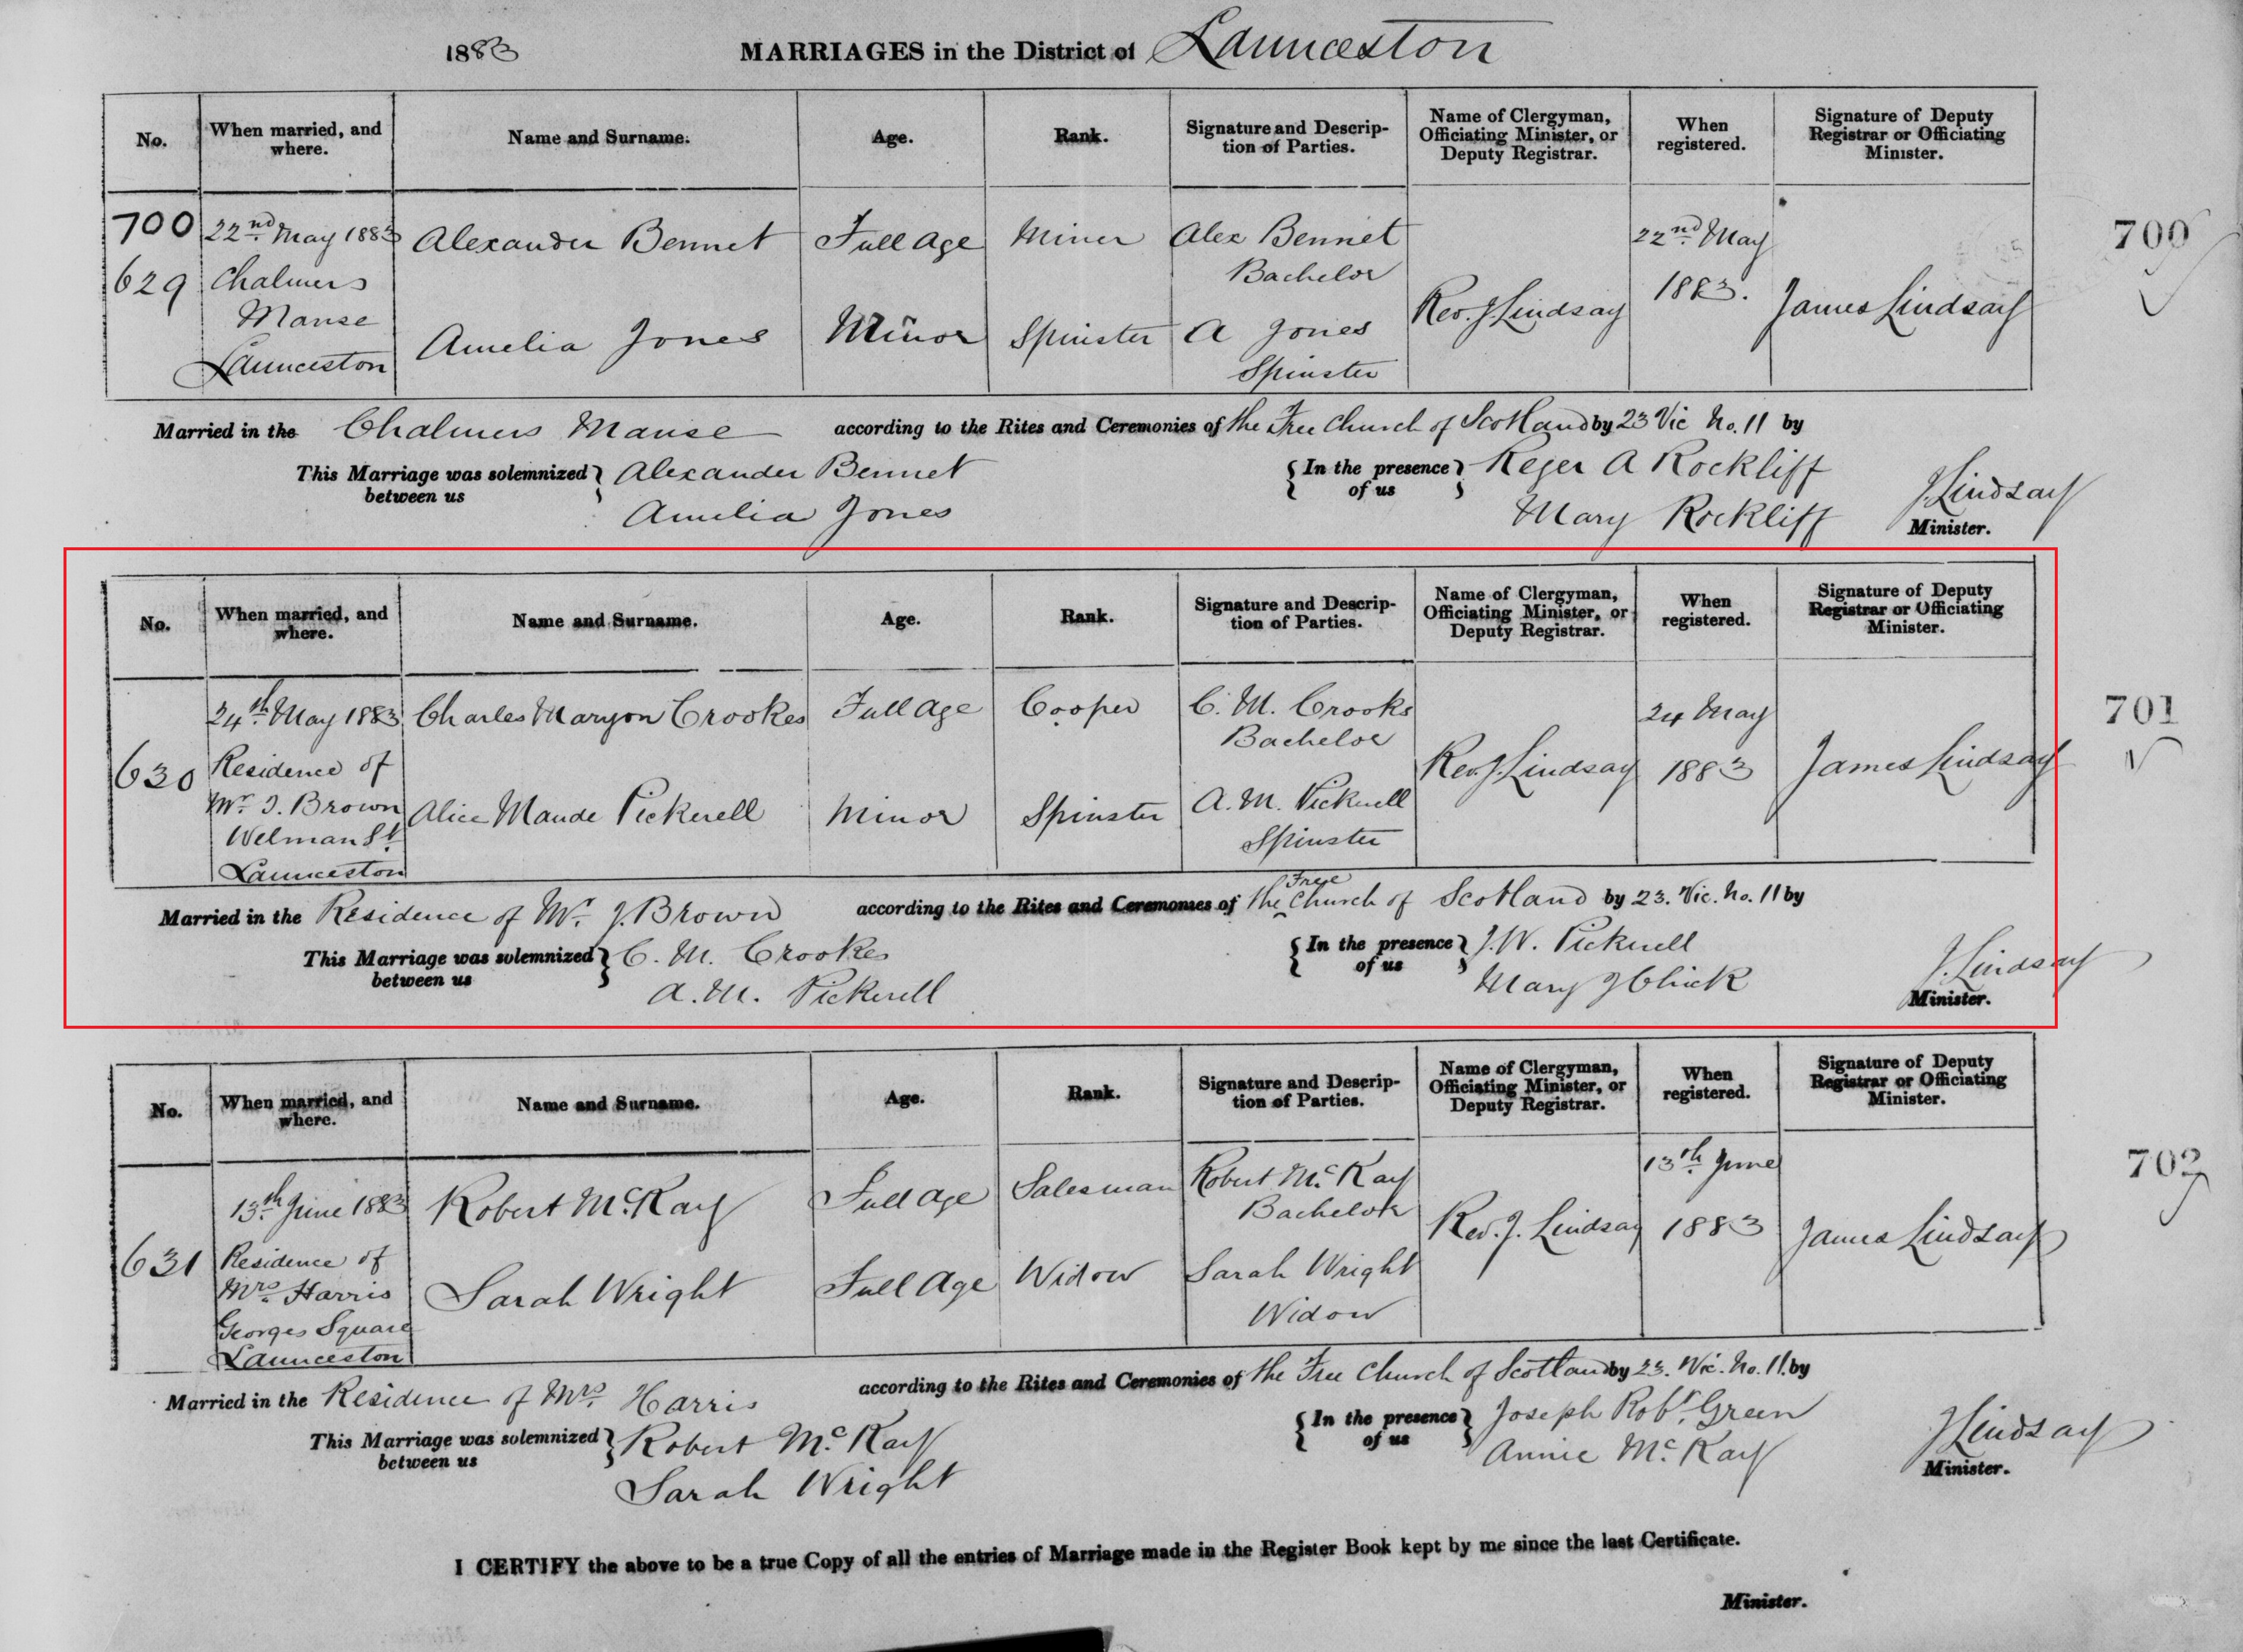 1883 MARRIAGES in the District of Launceston
No. When married, and where. Name and Surname. Age. Rank. Signature and Description of Parties. Name of Clergyman, Officiating Minister, or Deputy Registrar. When registered. Signature of Deputy Registrar or Officiating Minister.
700 22nd May 1883 Alexander Bennet Full Age Miner Alex Bennet 22nd May 700
629 Chalmers Bachelor 1883.
Manse Rev. J. Lindsay James Lindsay
Amelia Jones Minor Spinster A Jones
Launceston Spinster
Married in the Chalmers Manse according to the Rites and Ceremonies of the Free Church of Scotland by 23 Vic No. 11 by
This Marriage was solemnized between us Alexander Bennet In the presence of us Roger A Rockliff
Amelia Jones Mary Rockliff J. Lindsay
Minister.
No. When married, and where. Name and Surname. Age. Rank. Signature and Descrip-tion of Parties. Name of Clergyman, Officiating Minister, or Deputy Registrar. When registered. Signature of Deputy Registrar or Officiating Minister.
24th May 1883 Charles Maryon Crookes Full Age Cooper C. M. Crooks 24 May 701
Bachelor
630 Residence of Rev. J. Lindsay 1883 James Lindsay
Mr J. Brown Alice Maude Pickerell Minor Spinster A. M. Pickrell
Welman St. Spinster
Launceston
Married in the Residence of Mr. J. Brown according to the Rites and Ceremonies of the Free Church of Scotland by 23. Vic. No. 11 by
This Marriage was solemnized between us C. M. Crookes In the presence of us J. W. Pickrell
A. M. Pickerell Mary J Chick J. Lindsay
Minister.
No. When married, and where. Name and Surname. Age. Rank. Signature and Descrip-tion of Parties. Name of Clergyman, Officiating Minister, or Deputy Registrar. When registered. Signature of Deputy Registrar or Officiating Minister.
13th June 1883 Robert McKay Full Age Salesman Robert McKay 13th June 702
Bachelor
631 Residence of Rev. J. Lindsay 1883 James Lindsay
Mrs Harris Sarah Wright Full Age Widow Sarah Wright
Georges Square Widow
Launceston
Married in the Residence of Mrs. Harris according to the Rites and Ceremonies of the Free Church of Scotland by 23. Vic. No. 11. by
This Marriage was solemnized between us Robert McKay In the presence of us Joseph Robt. Green
Sarah Wright Annie McKay J Lindsay
Minister.
I CERTIFY the above to be a true Copy of all the entries of Marriage made in the Register Book kept by me since the last Certificate.
Minister.